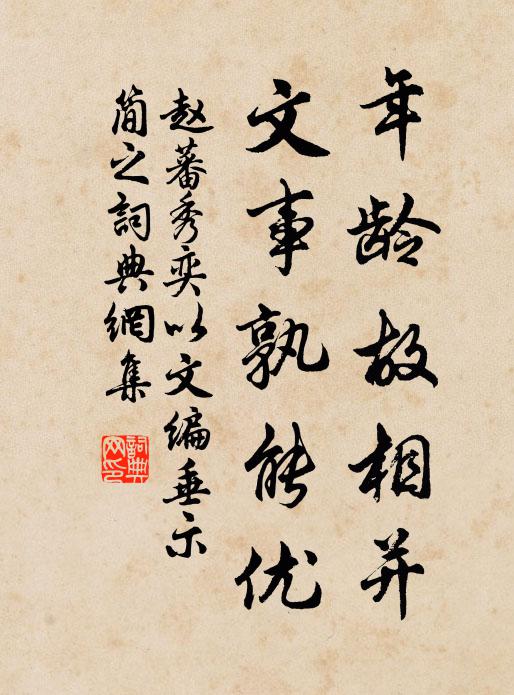 年龄故相并
文事孰能优
赵蕃秀奕以文编垂示
简之词典網集
詞典
网印